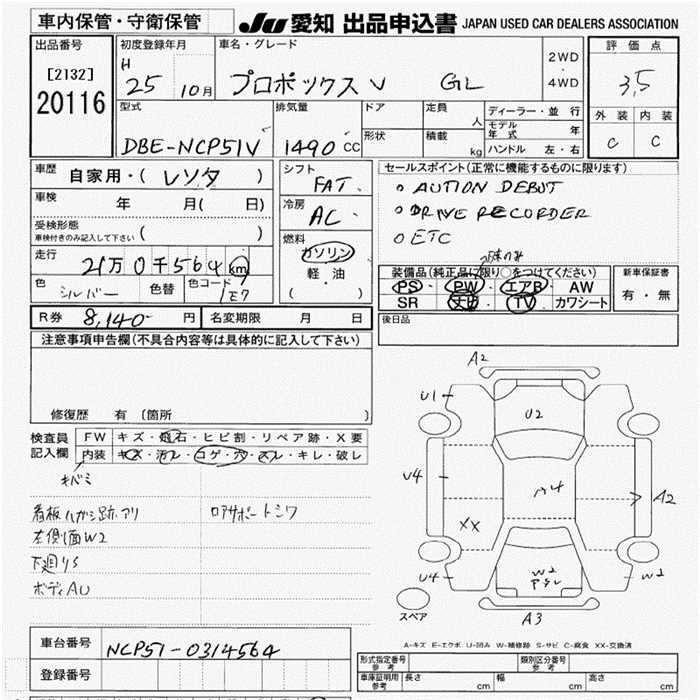 車内保管・守衛保管
JU 愛知 出品申込書 JAPAN USED CAR DEALERS ASSOCIATION
出品番号
[2132]
20116
初度登録年月
H
25 10月
車名・グレード
プロボックスV GL
2WD
・
4WD
評価点
3,5
外装 内装
C C
型式
DBE-NCP51V
排気量
1490 CC
ドア
形状
定員
人
積載
kg
ディーラー・並行
モデル年式 年
ハンドル 左・右
車歴
自家用・( レンタ )
車検 年 月( 日)
受検形態
車検付きのみ記入して下さい ( )
走行
21万0千564 km
色
シルバー
色替
色コード
1E7
シフト
FAT
冷房
AC
燃料
ガソリン
軽・油
( )
セールスポイント(正常に機能するものに限ります)
○ AUTION DEBUT
○ DRIVE RECORDER
○ ETC
装備品(純正品に限り○をつけてください)
PS PW エアB AW
SR ナビ TV カワシート
新車保証書
有・無
R券 8,140- 円 名変期限 月 日
後日品
注意事項申告欄(不具合内容等は具体的に記入して下さい)
修復歴 有 (箇所 )
検査員
記入欄
FW キズ・飛石・ヒビ割・リペア跡・X要
内装 キズ・汚レ・コゲ・穴・スレ・キレ・破レ
キバミ
看板ハガシ跡アリ ロアサポートシワ
左側面W2
下廻りS
ボディAU
A2
U1
U2
U4
A2
XX
U4
W2
W2
A3
スペア
A-キズ E-エクボ U-凹み W-補修跡 S-サビ C-腐食 XX-交換済
車台番号 NCP51-0314564
登録番号
形式指定番号 参考
類別区分番号 参考
車庫証明用 参考 長さ cm 幅 cm 高さ cm